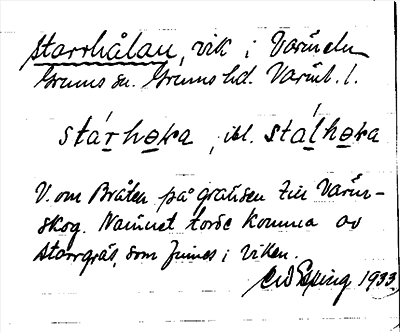 Starrhålan, vik i Värmeln
Grums sn. Grums hd. Värml. l.
stárhøka, ibl. stálhøka
V. om Bråten på gränsen till Värm-
skog. Namnet torde komma av
starrgräs, som finnes i viken.
1933